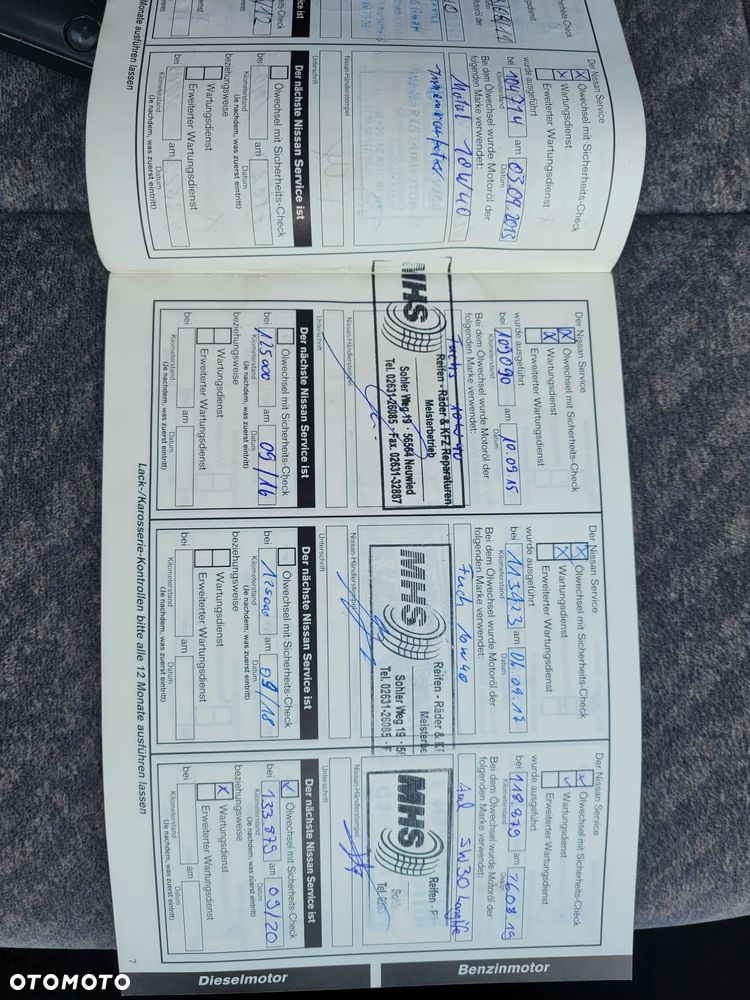 Ölwechsel mit Sicherheits-Check
Wartungsdienst
Der nächste Nissan Service ist
Monate ausführen lassen
Der Nissan Service
X Ölwechsel mit Sicherheits-Check
X Wartungsdienst
Erweiterter Wartungsdienst
wurde ausgeführt
bei 104714 am 03.09.2013
Kilometerstand Datum
Bei dem Ölwechsel wurde Motoröl der
folgenden Marke verwendet:
Motul 10W40
Nissan-Händlerstempel
Unterschrift
Der nächste Nissan Service ist
Ölwechsel mit Sicherheits-Check
bei am
Kilometerstand Datum
(Je nachdem, was zuerst eintritt)
beziehungsweise
Wartungsdienst
Erweiterter Wartungsdienst
bei am
Kilometerstand Datum
(Je nachdem, was zuerst eintritt)
Der Nissan Service
X Ölwechsel mit Sicherheits-Check
X Wartungsdienst
Erweiterter Wartungsdienst
wurde ausgeführt
bei 109090 am 10.09.15
Kilometerstand Datum
Bei dem Ölwechsel wurde Motoröl der
folgenden Marke verwendet:
Fuchs 10W40
MHS
Reifen - Räder & KFZ Reparaturen
Meisterbetrieb
Sohler Weg 19 · 56564 Neuwied
Tel. 02631-26085 · Fax. 02631-32887
Nissan-Händlerstempel
Unterschrift
Der nächste Nissan Service ist
Ölwechsel mit Sicherheits-Check
bei 125000 am 09/16
Kilometerstand Datum
(Je nachdem, was zuerst eintritt)
beziehungsweise
Wartungsdienst
Erweiterter Wartungsdienst
bei am
Kilometerstand Datum
(Je nachdem, was zuerst eintritt)
Der Nissan Service
X Ölwechsel mit Sicherheits-Check
X Wartungsdienst
Erweiterter Wartungsdienst
wurde ausgeführt
bei 113423 am 09.17
Kilometerstand Datum
Bei dem Ölwechsel wurde Motoröl der
folgenden Marke verwendet:
Fuch 10W40
MHS
Reifen - Räder & KF
Meisterbe
Sohler Weg 19 · 56
Tel. 02631-26085 · F
Nissan-Händlerstempel
Unterschrift
Der nächste Nissan Service ist
Ölwechsel mit Sicherheits-Check
bei 125000 am 09/18
Kilometerstand Datum
(Je nachdem, was zuerst eintritt)
beziehungsweise
Wartungsdienst
Erweiterter Wartungsdienst
bei am
Kilometerstand Datum
(Je nachdem, was zuerst eintritt)
Der Nissan Service
Ölwechsel mit Sicherheits-Check
Wartungsdienst
Erweiterter Wartungsdienst
wurde ausgeführt
bei 118879 am 19
Kilometerstand Datum
Bei dem Ölwechsel wurde Motoröl der
folgenden Marke verwendet:
5W30 Longlife
MHS
Reifen - R
Sohle
Tel. 026
Nissan-Händlerstempel
Unterschrift
Der nächste Nissan Service ist
X Ölwechsel mit Sicherheits-Check
bei 133.879 am 09/20
Kilometerstand Datum
(Je nachdem, was zuerst eintritt)
beziehungsweise
X Wartungsdienst
Erweiterter Wartungsdienst
bei am
Kilometerstand Datum
(Je nachdem, was zuerst eintritt)
Lack-/Karosserie-Kontrollen bitte alle 12 Monate ausführen lassen
7
Benzinmotor
Dieselmotor
OTOMOTO